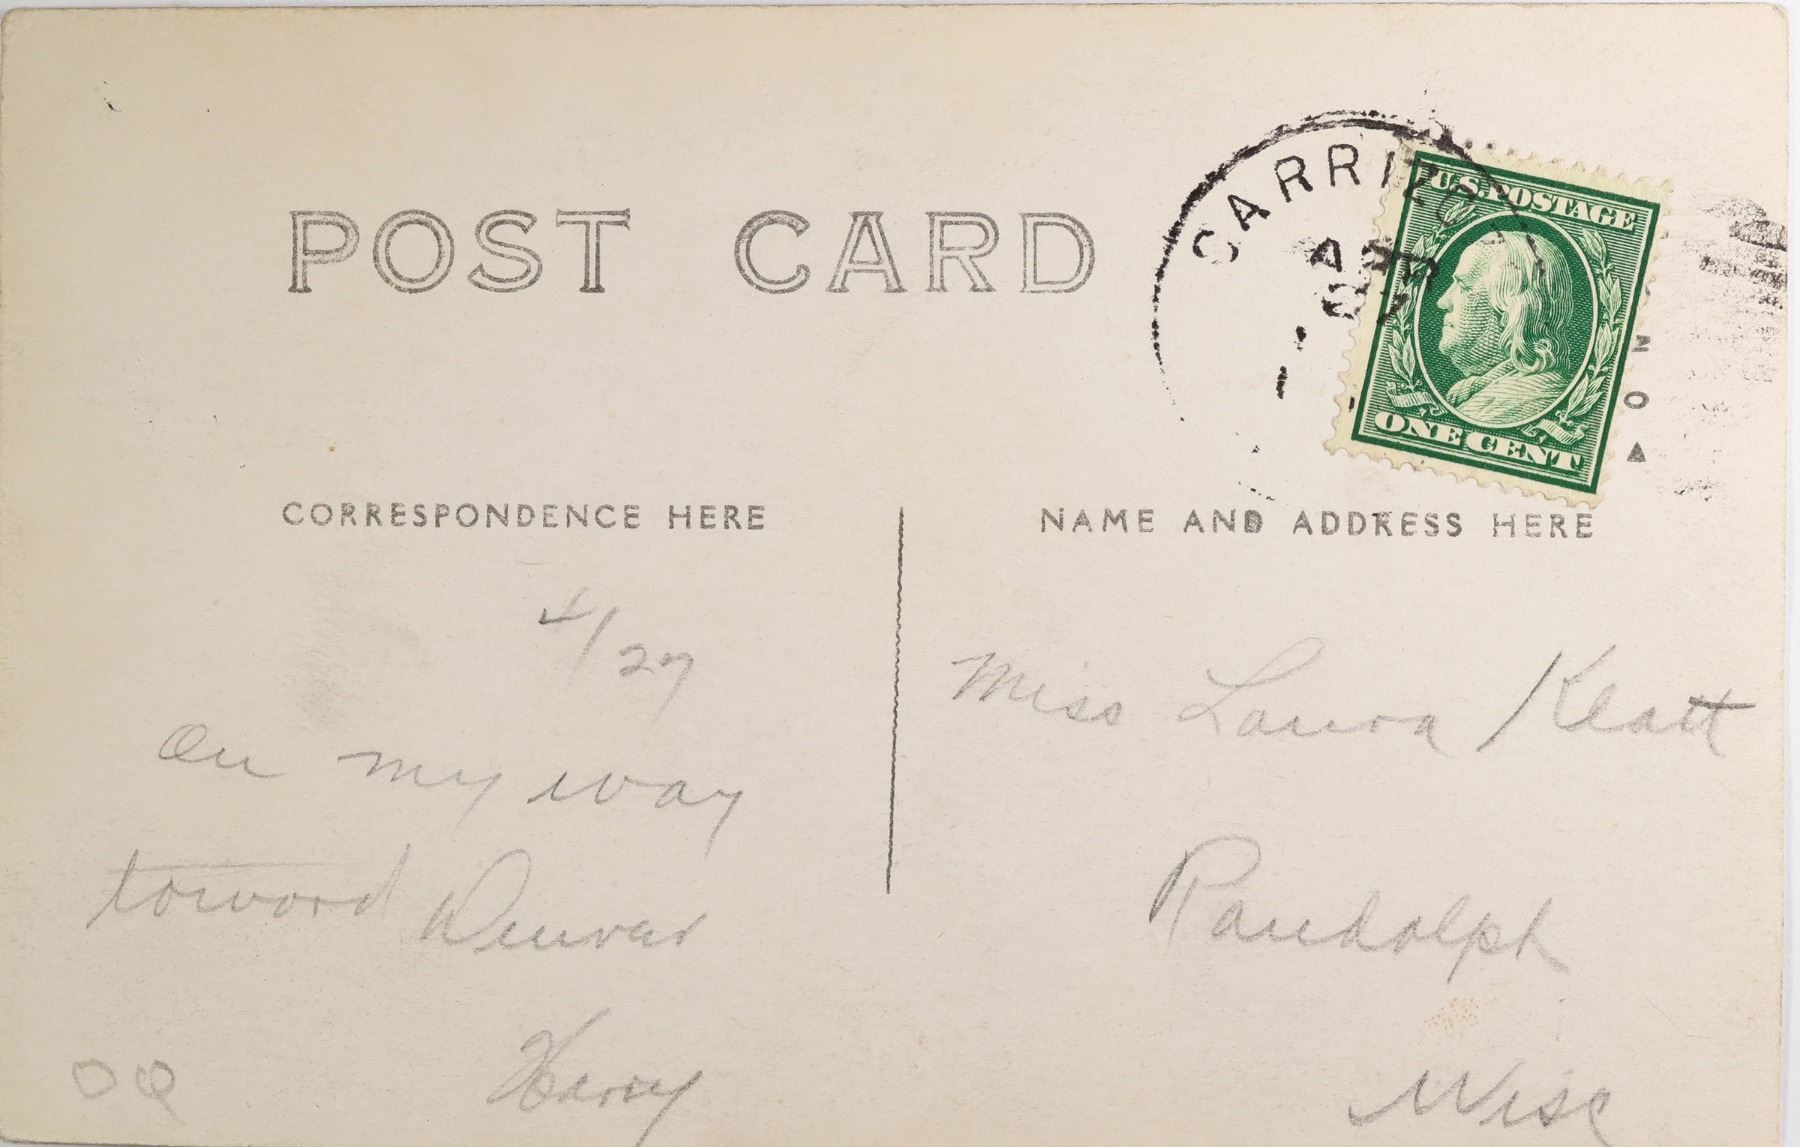 POST CARD
CARRIZO
APR
27
U.S. POSTAGE
ONE CENT
NO
CORRESPONDENCE HERE
NAME AND ADDRESS HERE
4/27
On my way
toword Denver
Harry
OQ
Miss Laura Klatt
Randolph
Wisc